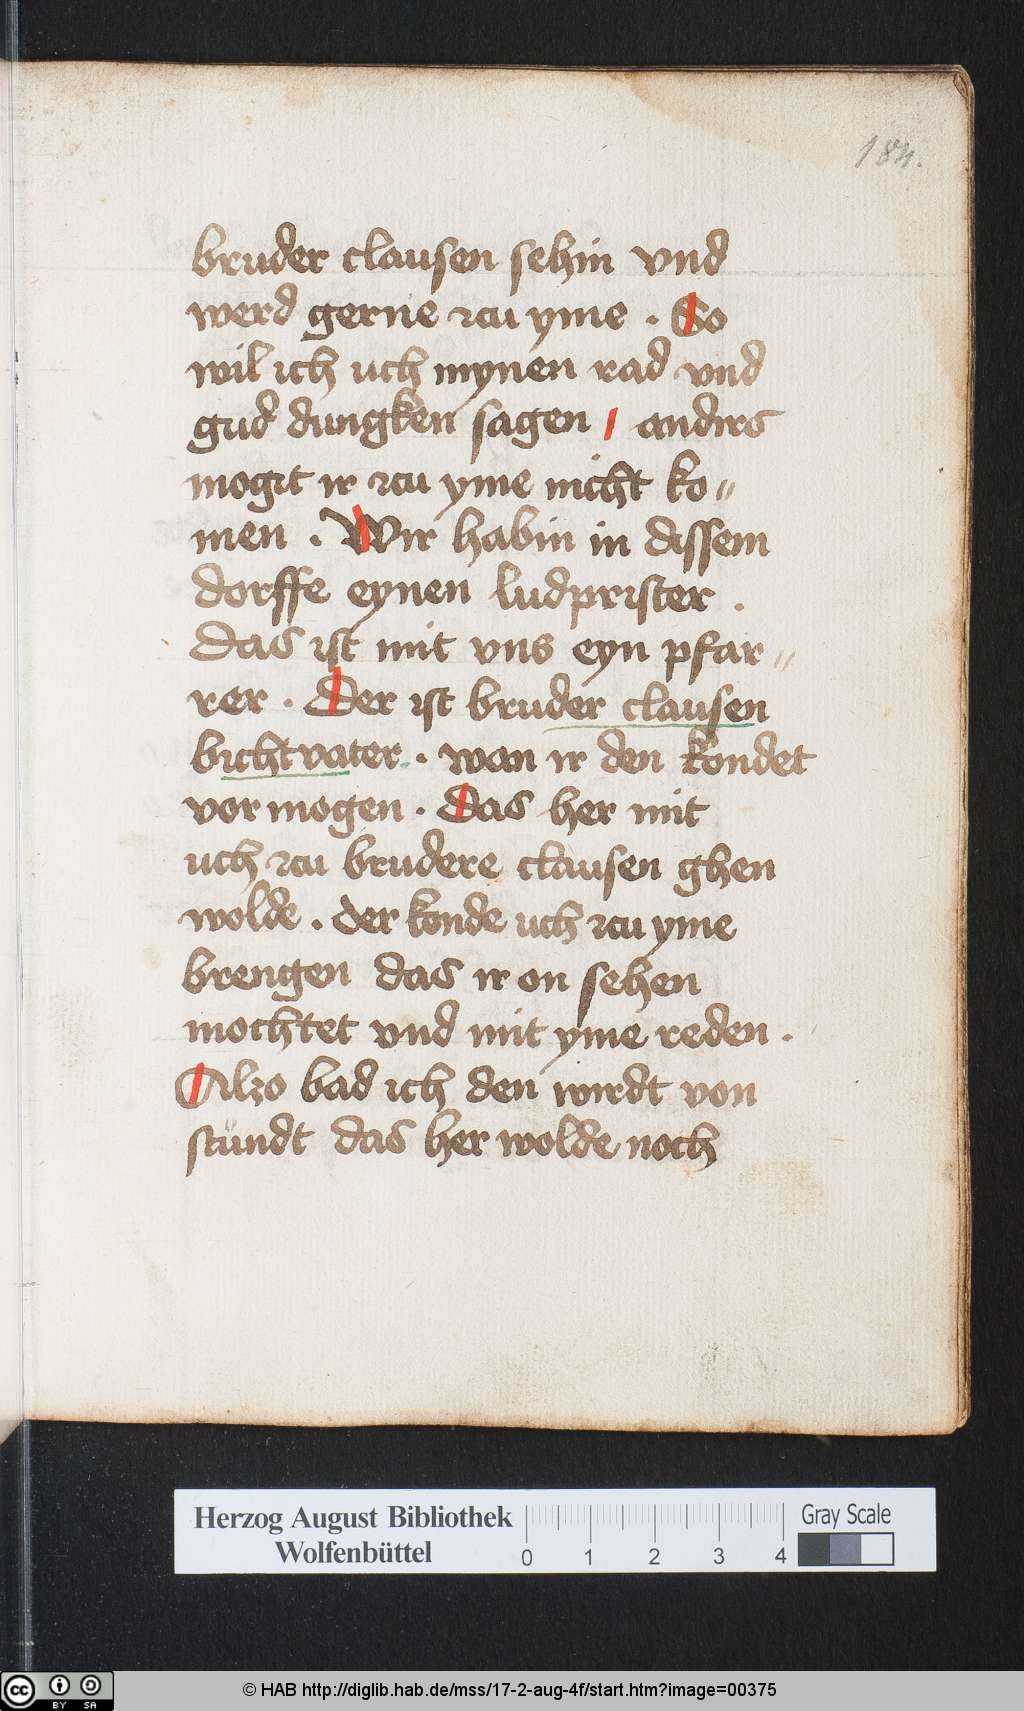 184.
bruder clausen sehin vnd
werd gerne zcu yme . So
wil ich uch mynen rad vnd
gud dungken sagen / andirs
mogit ir zcu yme nicht ko=
men . Wir habin in dissem
dorffe eynen ludprister .
Das ist mit vns eyn pfar=
rer . Der ist bruder clausen
bichtvater . wan ir den kondet
vor mogen . Das her mit
uch zcu brudere clausen ghen
wolde . der konde uch zcu yme
brengen das ir on sehen
mochtet vnd mit yme reden .
Alzo bad ich den wirdt von
stundt das her wolde noch
Herzog August Bibliothek
Wolfenbüttel
0 1 2 3 4
Gray Scale
cc BY SA
© HAB http://diglib.hab.de/mss/17-2-aug-4f/start.htm?image=00375